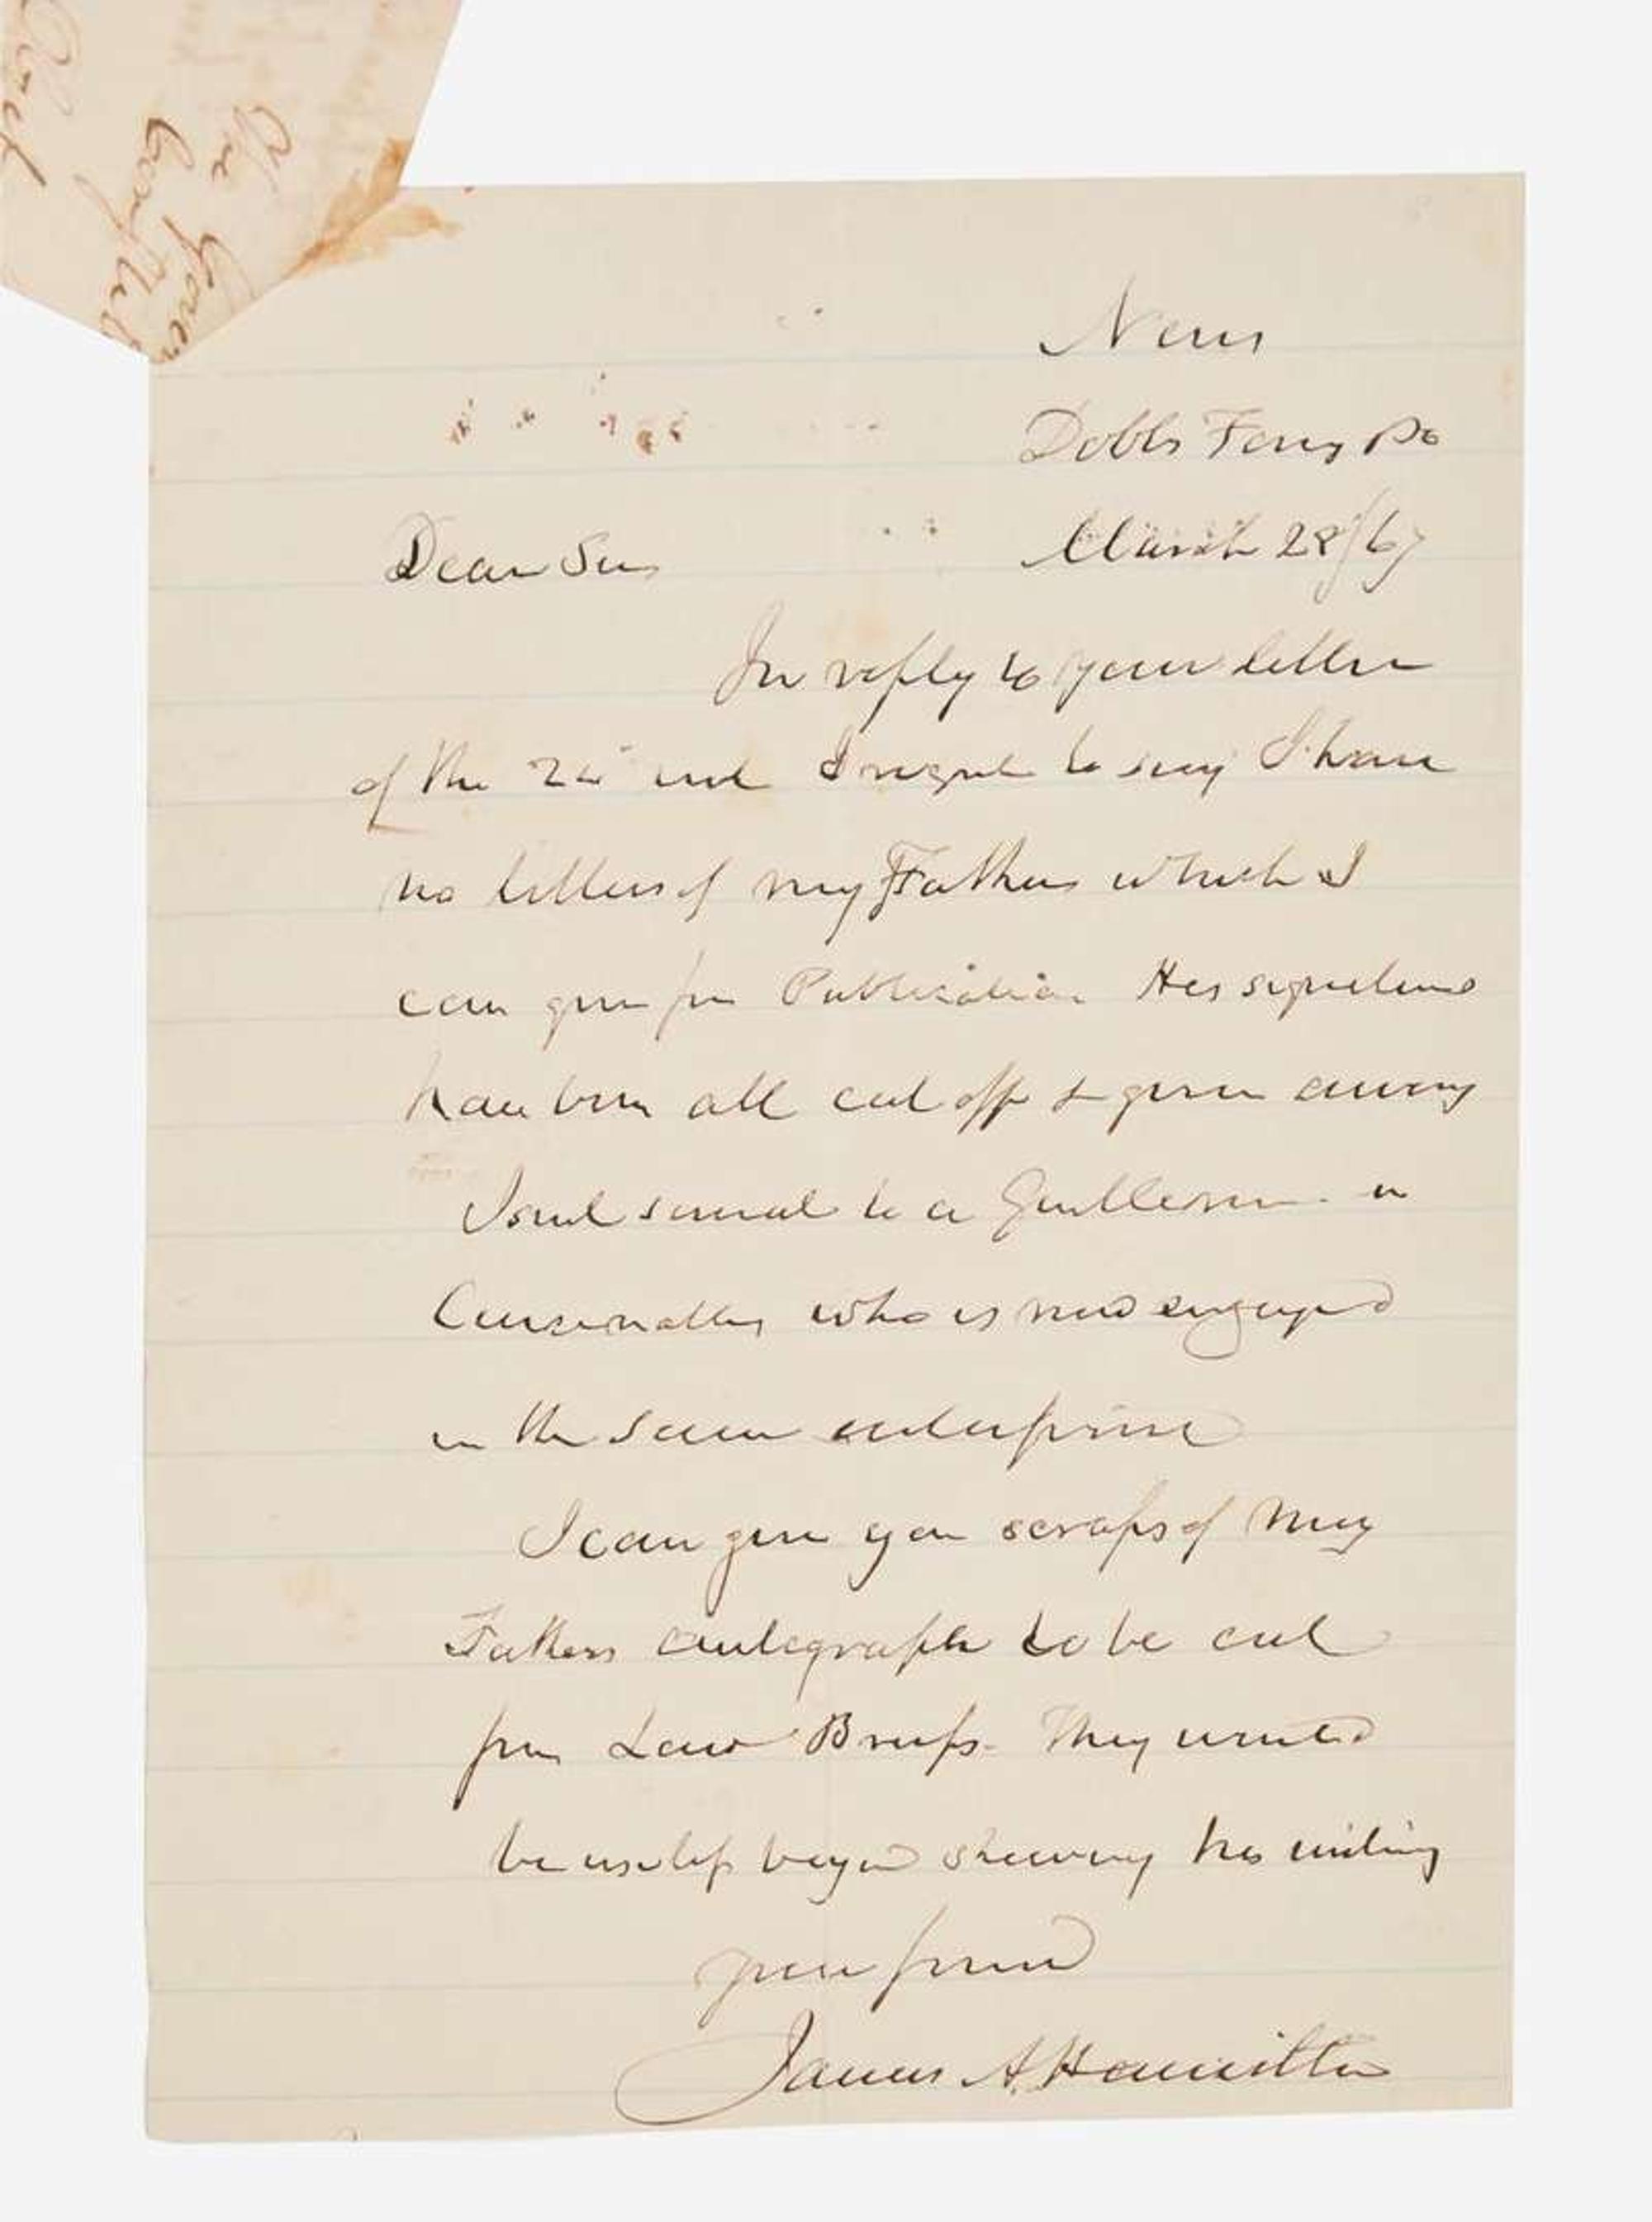 Nevis
Dobbs Ferry Po
March 28/67
Dear Sir
In reply to your letter
of the inst I regret to say I have
no letters of my Fathers which I
can give for Publication His signatures
have been all cut off & given away
I sent several to a Gentleman in
Cincinnatti who is now engaged
in the same enterprise
I can give you scraps of my
Fathers autograph to be cut
from Law Briefs. They would
be useless beyond shewing his writing
your friend
James A. Hamilton